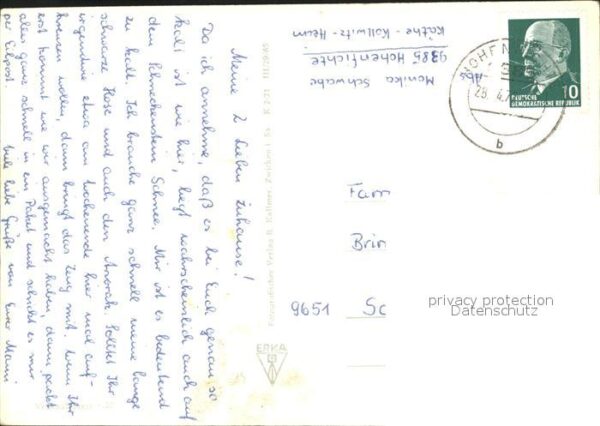 Meine 2 Lieben zuhause!
Da ich annehme, daß es bei Euch genau so
kalt ist wie hier, liegt wahrscheinlich auch auf
dem Schneckenstein Schnee. Mir ist es bedeutend
zu kalt. Ich brauche ganz schnell meine lange
schwarze Hose und auch den Anorak. Solltet Ihr
irgendwie etwa am Wochenende hier mal auf-
kreuzen wollen, dann bringt das Zeug mit. Wenn Ihr
erst kommt wie wir ausgemacht haben, dann packt
alles ganz schnell in ein Paket und schickt es mir
per Eilpost. Viele liebe Grüße von Eurer Mami
Abs.
Monika Schwabe
9385 Hohenfichte
Käthe-Kollwitz-Heim
HOHEN
28. 4.
b
10
DEUTSCHE
DEMOKRATISCHE REPUBLIK
Fam
Brin
9651 Sc
ERKA
privacy protection
Datenschutz